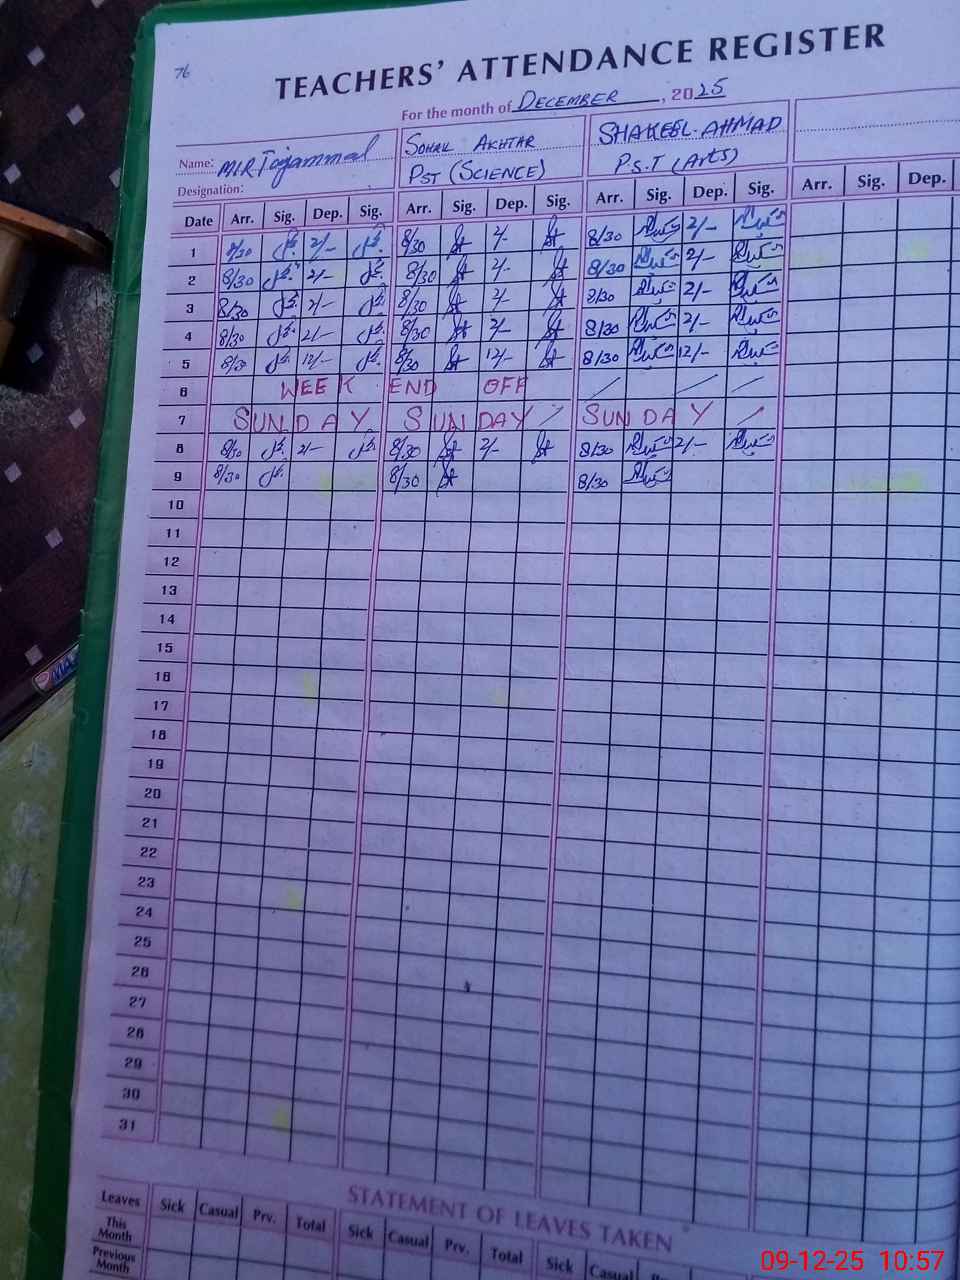 76
TEACHERS' ATTENDANCE REGISTER
For the month of DECEMBER, 2025
Name: MIR Tajammal SOHAIL AKHTAR SHAKEEL AHMAD
Designation: PST (SCIENCE) P.S.T (Arts)
Date Arr. Sig. Dep. Sig. Arr. Sig. Dep. Sig. Arr. Sig. Dep. Sig. Arr. Sig. Dep.
1 8/30 2/- 8/30 2/- 8/30 2/-
2 8/30 2/- 8/30 2/- 8/30 2/-
3 8/30 2/- 8/30 2/- 8/30 2/-
4 8/30 2/- 8/30 2/- 8/30 2/-
5 8/30 12/- 8/30 12/- 8/30 12/-
6 WEEK END OFF
7 SUNDAY SUNDAY SUNDAY
8 8/30 2/- 8/30 2/- 8/30 2/-
9 8/30 8/30 8/30
10
11
12
13
14
15
16
17
18
19
20
21
22
23
24
25
26
27
28
29
30
31
STATEMENT OF LEAVES TAKEN
Leaves Sick Casual Prv. Total Sick Casual Prv. Total Sick Casual
This Month
Previous Month
09-12-25 10:57